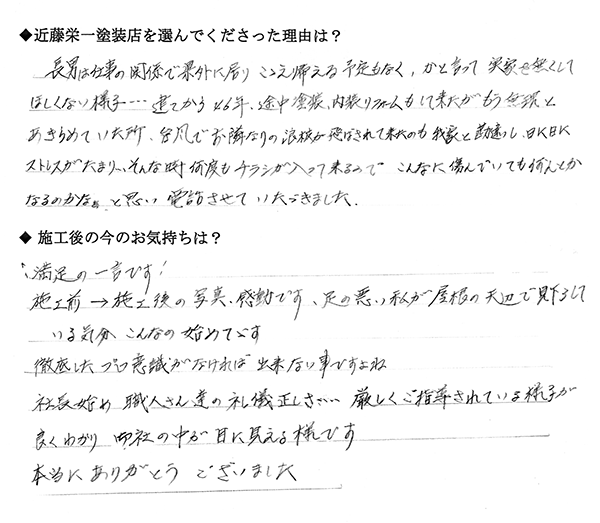 ◆近藤栄一塗装店を選んでくださった理由は？
長男は仕事の関係で県外に居り ここえ帰える予定もなく、かと言って 実家を無くして
ほしくない様子… 建てから46年、途中塗装、内装リフォームもして来たがもう無理と
あきらめていた所、台風でお隣なりの波板が飛ばされて来たのも我家と勘違いし、日々日々
ストレスがたまり… そんな時 何度もチラシが入って来るので こんなに傷んでいても何んとか
なるのかなぁ と思い 電話させて いただきました.
◆ 施工後の今のお気持ちは？
満足の一言です!
施工前→施工後の写真、感動です、足の悪い私が屋根の天辺で見下して
いる気分 こんなの 始めてです
徹底した プロ意識がなければ 出来ない事ですよね
社長始め 職人さん達の礼儀正しさ… 厳しくご指導されている様子が
良くわかり 御社の中が目に見える様です
本当に ありがとう ございました